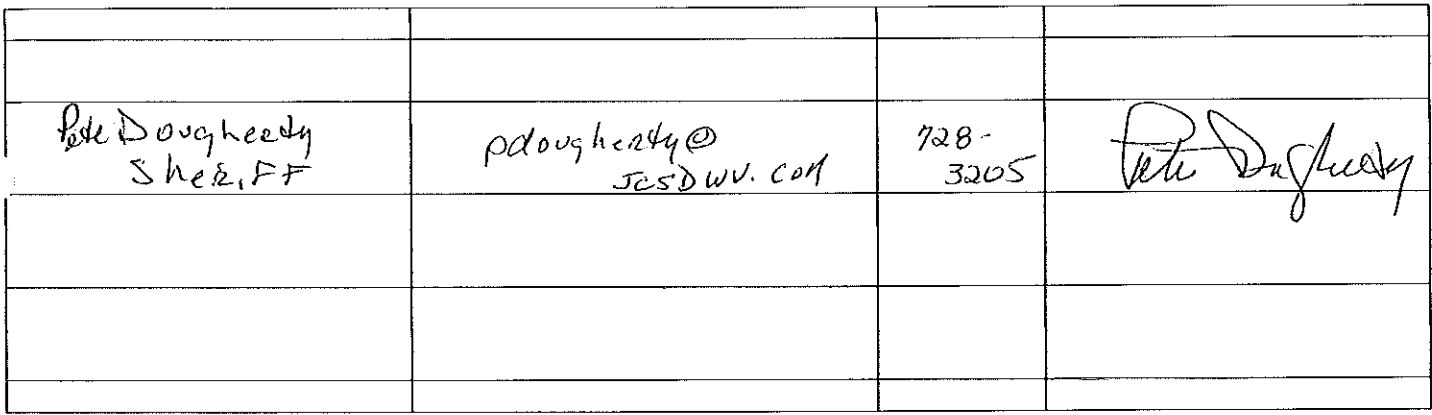 Pete Dougherty
Sheriff
pdougherty@
JCSDWV.COM
728-
3205
Pete Dougherty